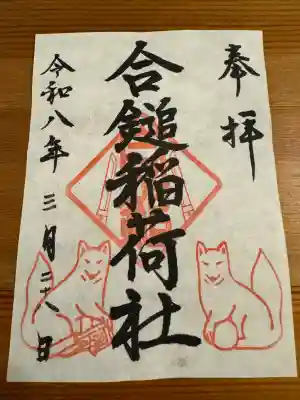 奉拝
合鎚稲荷社
令和八年三月二十八日